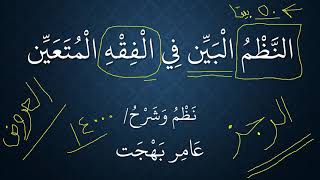 ٥٠ بيتا
النَّظْمُ الْبَيِّن فِي الْفِقْهِ الْمُتَعَيِّن
نَظْمُ وَشَرْحُ/
عَامِر بَهْجَت
الرجز
العروض